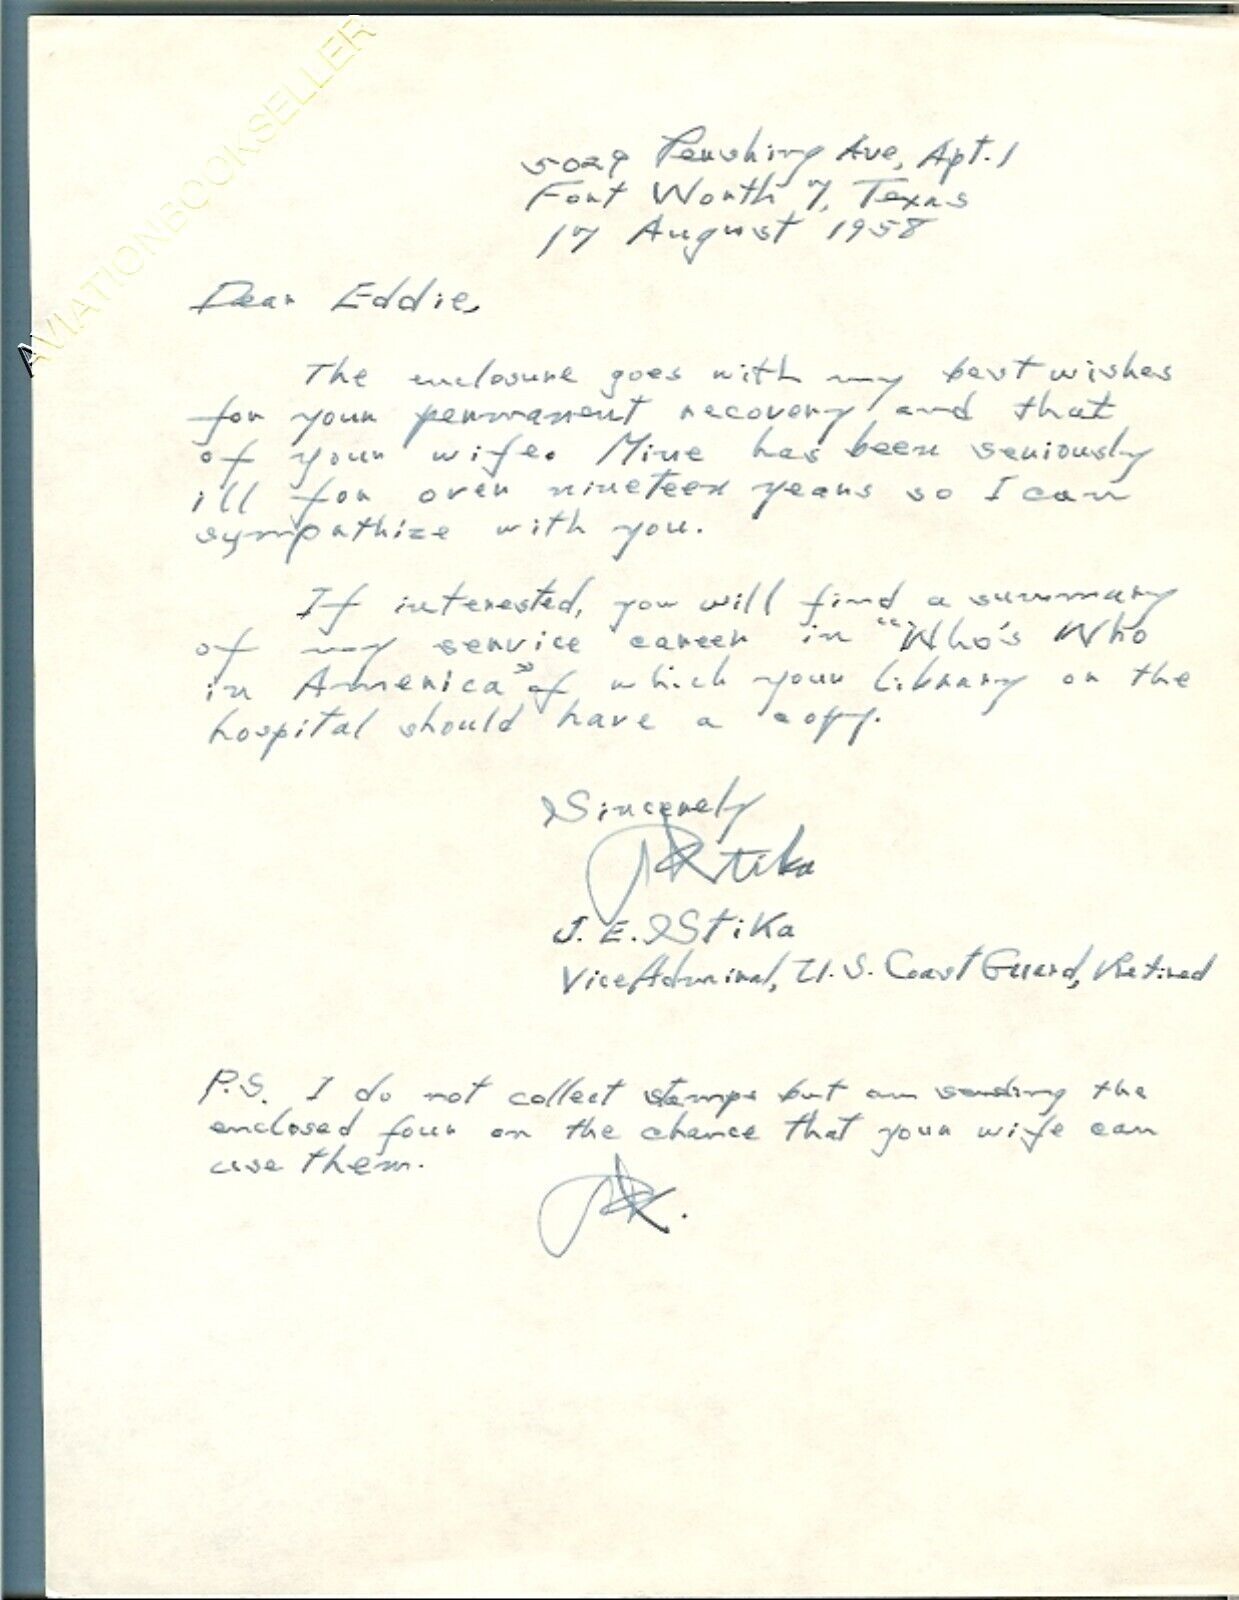 AVIATIONBOOKSELLER
5029 Pershing Ave, Apt. 1
Fort Worth 7, Texas
17 August 1958
Dear Eddie,
The enclosure goes with my best wishes
for your permanent recovery and that
of your wife. Mine has been seriously
ill for over nineteen years so I can
sympathize with you.
If interested, you will find a summary
of my service career in "Who's Who
in America" of which your library or the
hospital should have a copy.
Sincerely
JEStika
J. E. Stika
Vice Admiral, U. S. Coast Guard, Retired
P.S. I do not collect stamps but am sending the
enclosed four on the chance that your wife can
use them.
JES.